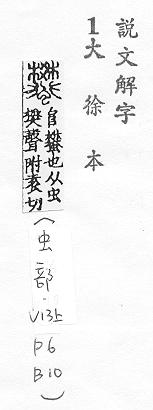 説文解字
1大徐本
蠜
𨸏蠜也从虫
樊聲附袁切
(虫部·V13上
P6
B10)